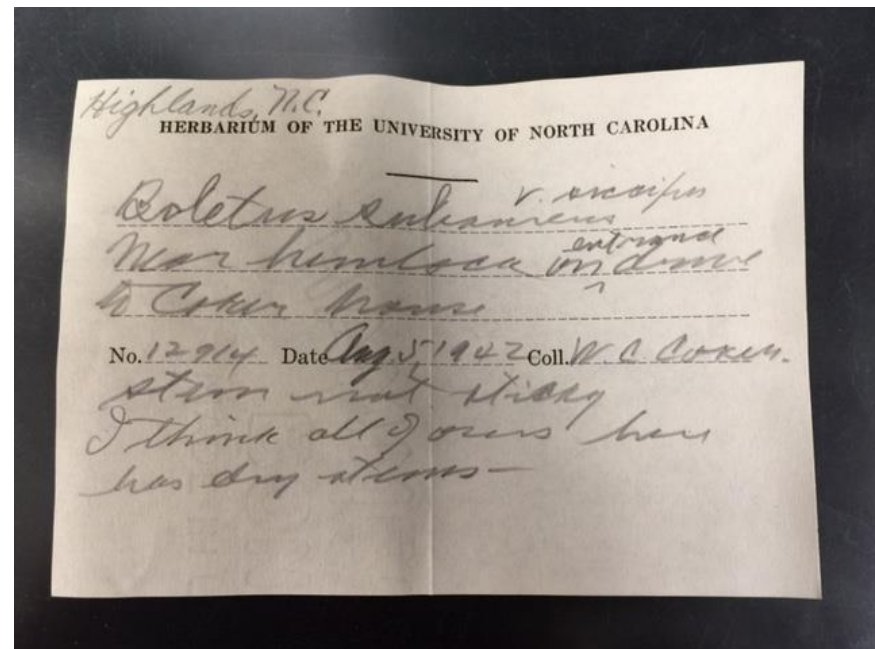 Highlands, N.C.
HERBARIUM OF THE UNIVERSITY OF NORTH CAROLINA
Boletus v.
Near hemlock on entrance drive
to Coker house
No. 12914 Date Aug 5, 1942 Coll. W. C. Coker.
stem not sticky
I think all of ours here
has dry stems-